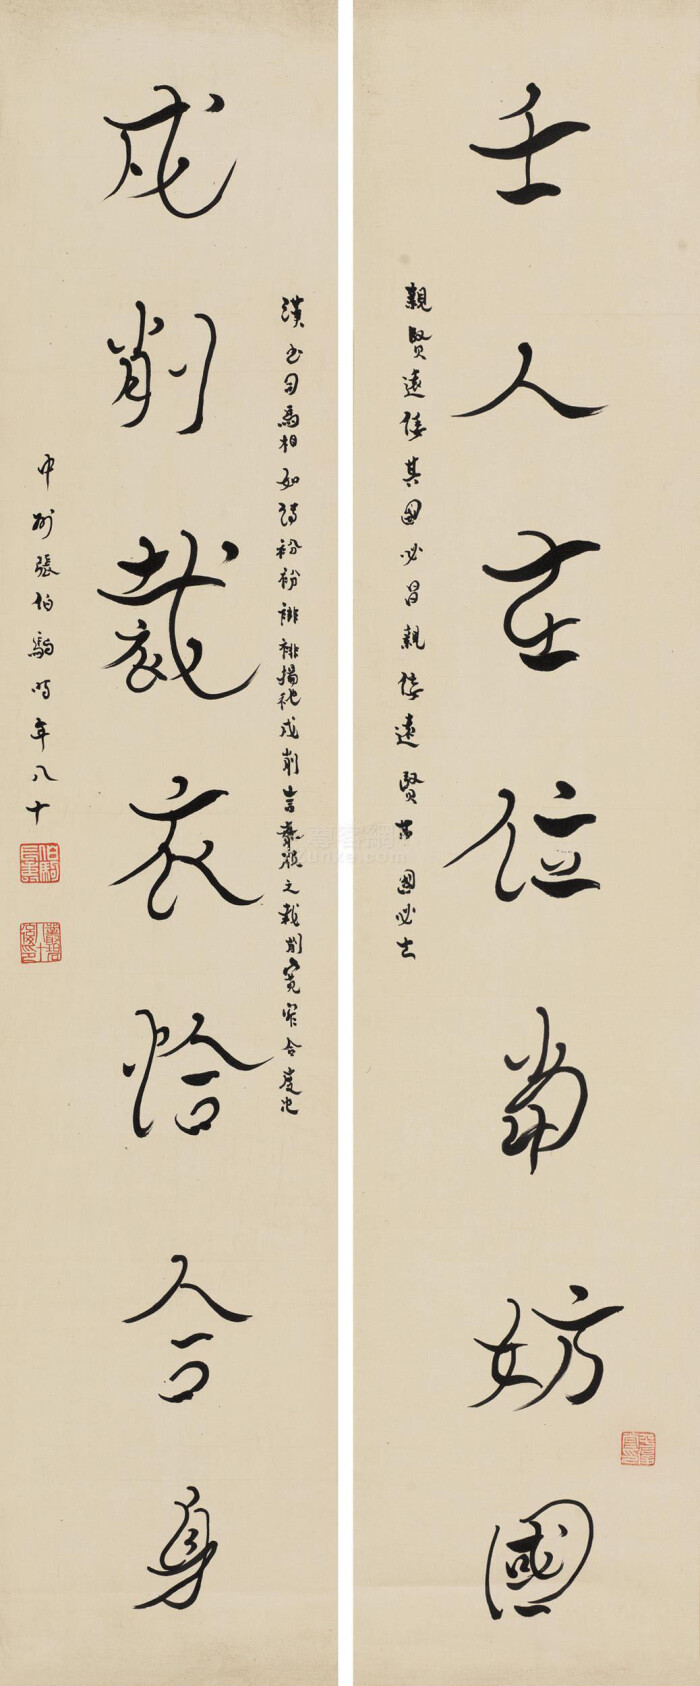 壬人在位當妨國
親賢遠佞其國必昌親佞遠賢 國必亡
戍削裁衣恰合身
漢書司馬相如傳衯衯裶裶揚袘戍削言 之裁削寬窄合度也
中州張伯駒時年八十